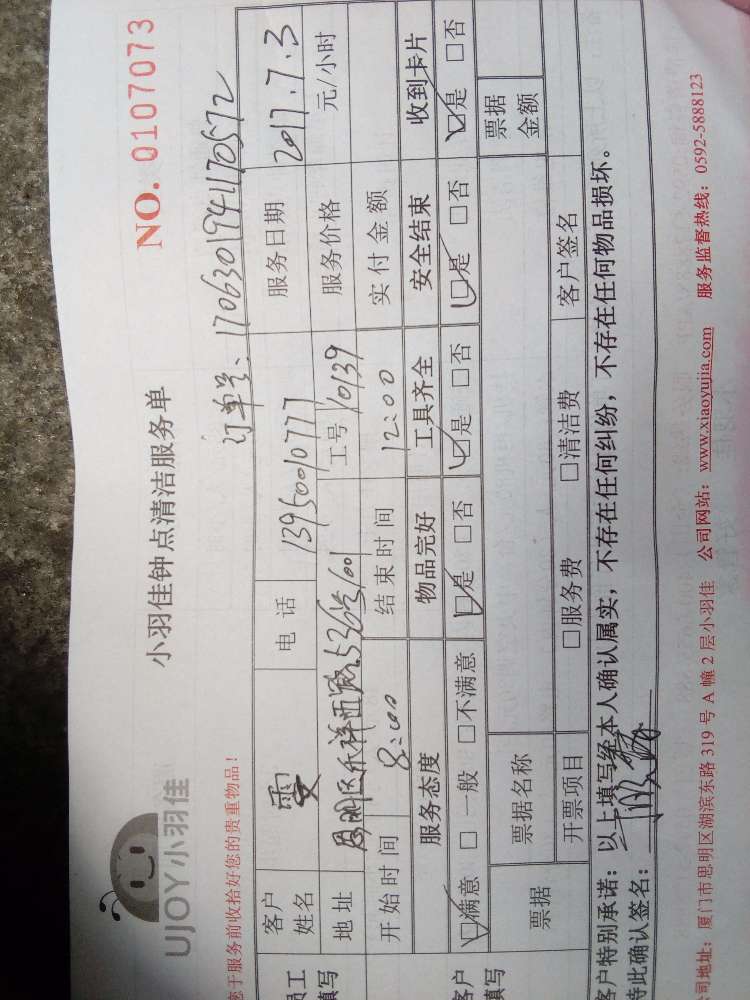 UJOY小羽佳
小羽佳钟点清洁服务单
NO. 0107073
您于服务前收拾好您的贵重物品！
订单号：1706301941170572
员工
填写
客户
姓名
雯
电 话
13950010777
服务日期
2017.7.3
地 址
536号601
工号
10139
服务价格
元/小时
开始时间
8:00
结束时间
12:00
实付金额
客户
填写
服务态度
物品完好
工具齐全
安全结束
收到卡片
☑满意 □一般 □不满意
☑是 □否
☑是 □否
☑是 □否
☑是 □否
票据
票据名称
票据
金额
开票项目
□服务费
□清洁费
客户签名
客户特别承诺：以上填写经本人确认属实，不存在任何纠纷，不存在任何物品损坏。
特此确认签名：
司地址：厦门市思明区湖滨东路 319 号 A 幢 2 层小羽佳 公司网站：www.xiaoyujia.com 服务监督热线：0592-5888123